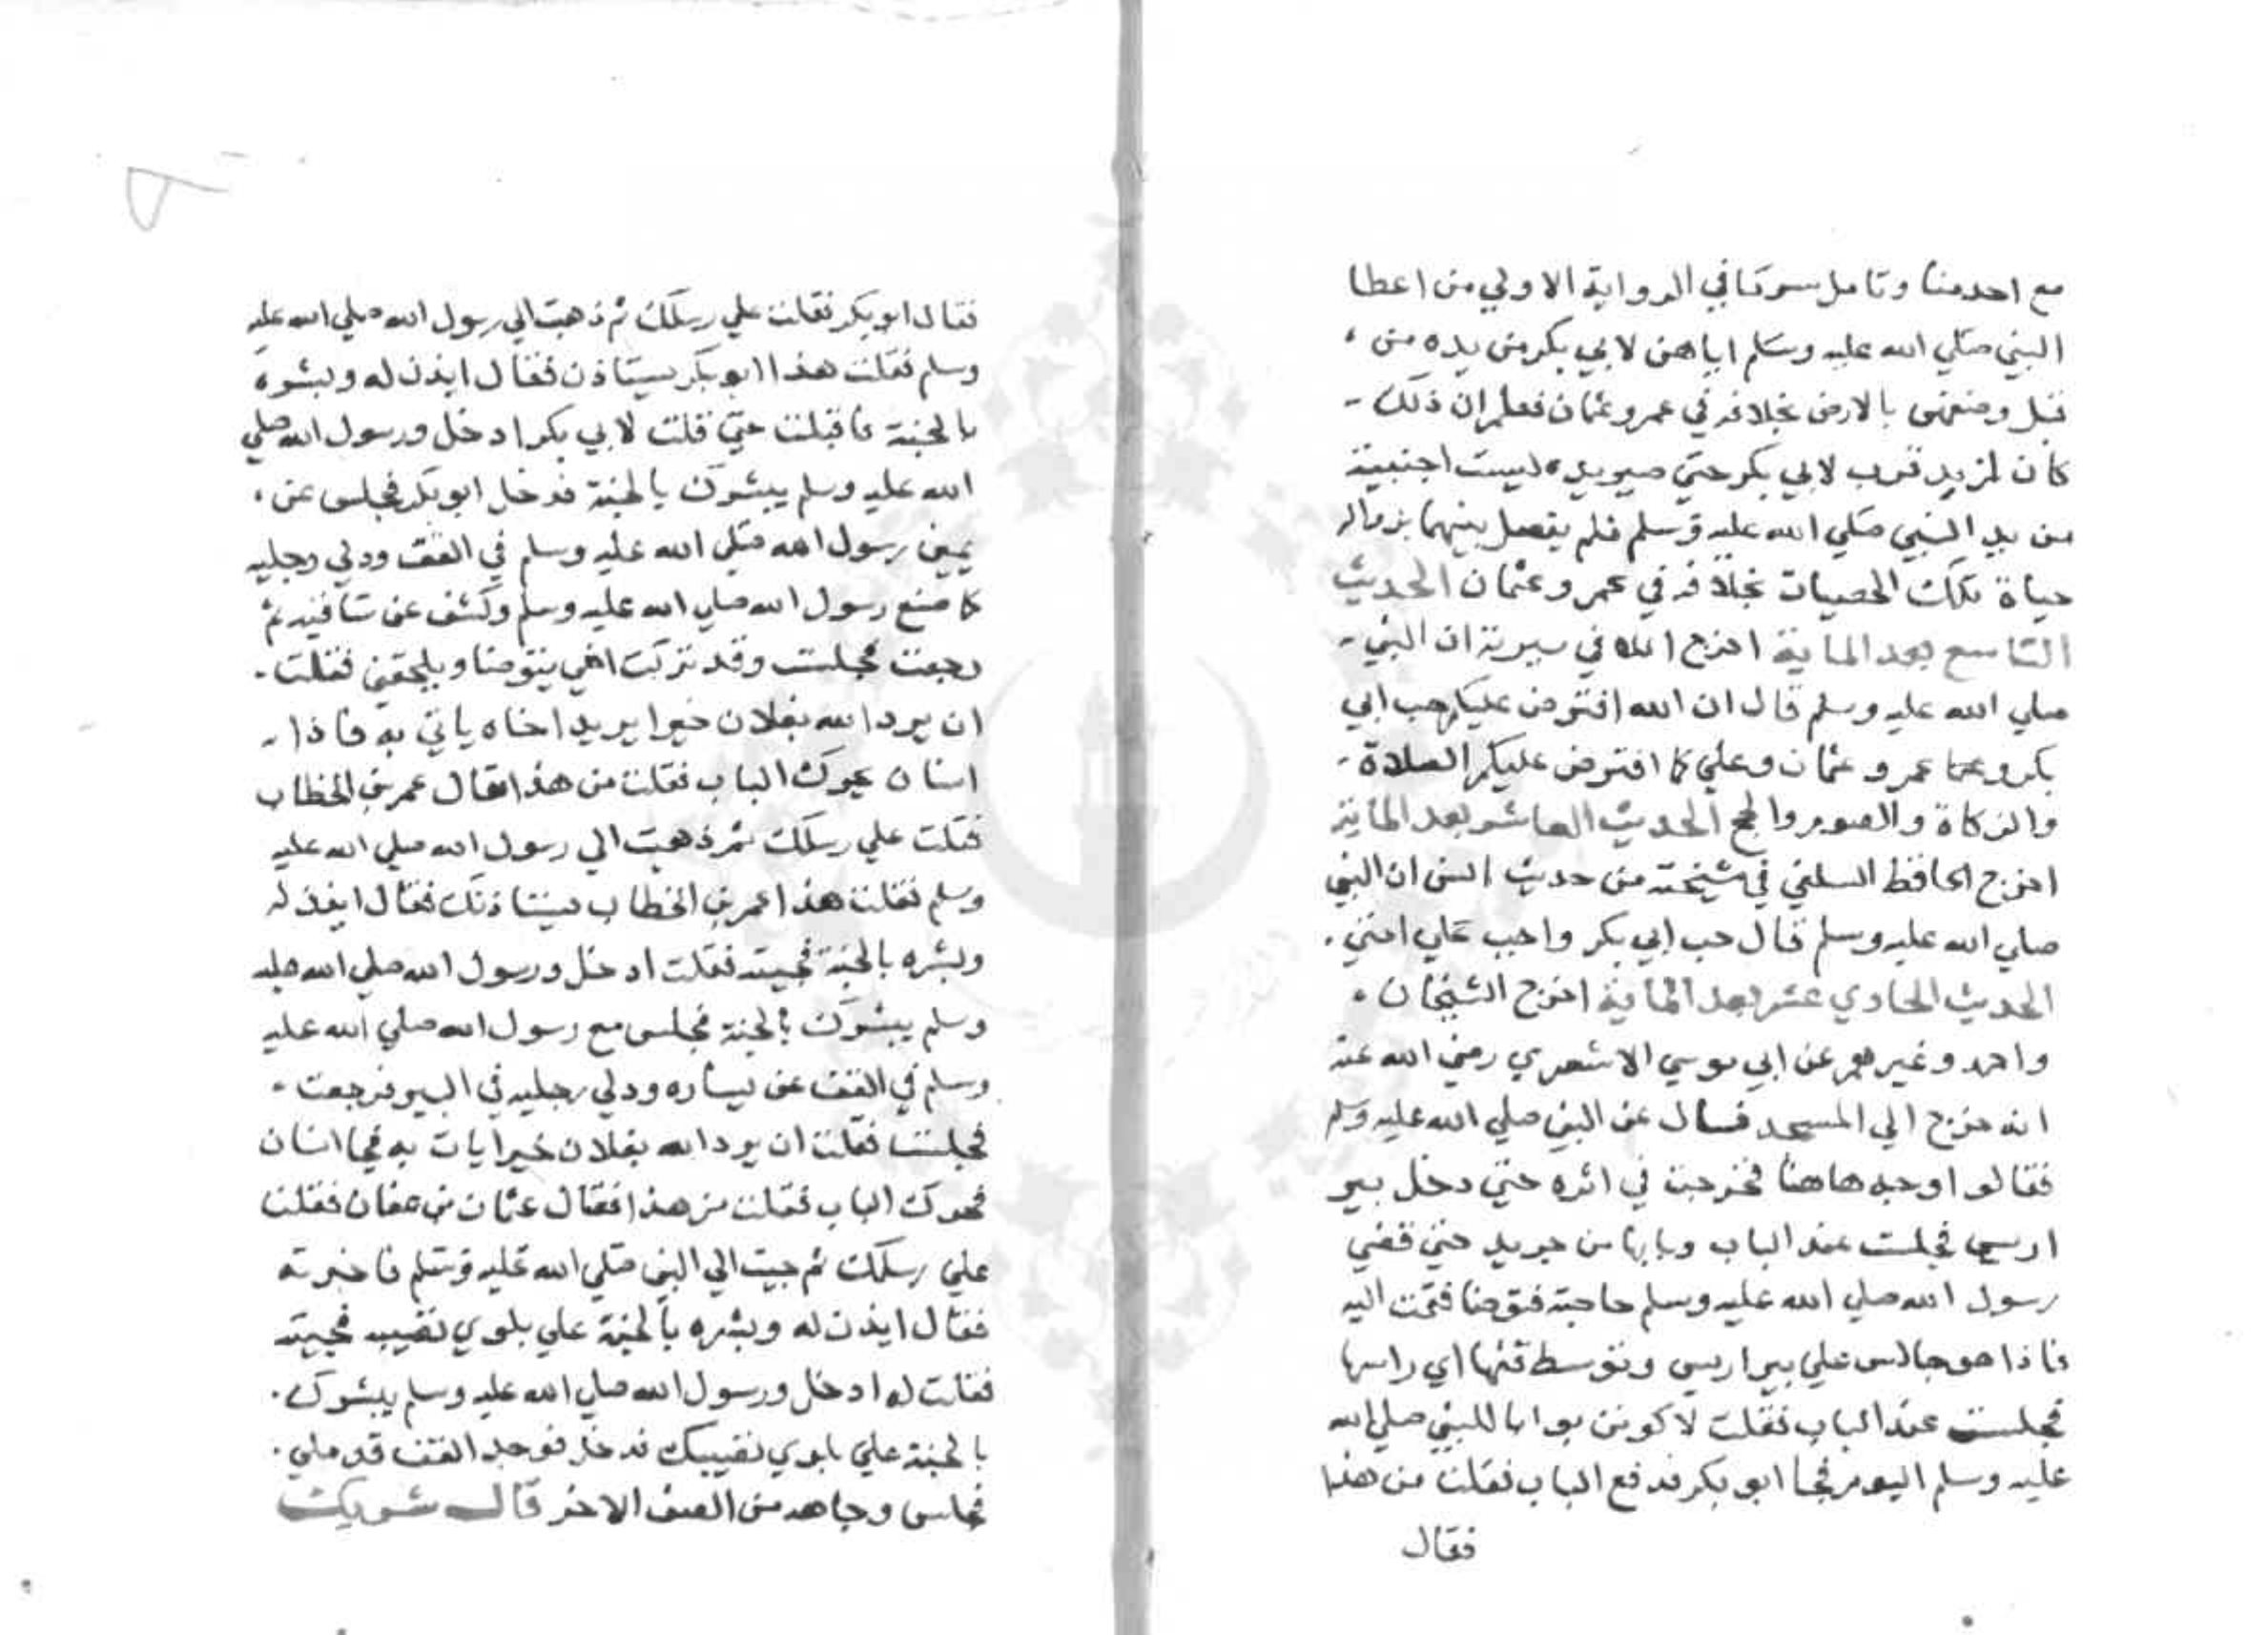 مع احد منا وتامل سر ما في الرواية الاولي من اعطا
النبي صلي الله عليه وسلم اياهن لابي بكر من يده من
قبل وضعهن بالارض بخلافه في عمر وعثمان فعلم ان ذلك
كان لمزيد قرب لابي بكر حتي صير يده ليست اجنبية
من يد النبي صلي الله عليه وسلم فلم يفصل بينهما بزوال
حياة تلك الحصيات بخلافه في عمر وعثمان الحديث
التاسع بعد الماية اخرج الملا في سيرته ان النبي
صلي الله عليه وسلم قال ان الله افترض عليكم حب ابي
بكر وعمر وعثمان وعلي كما افترض عليكم الصلاة
والزكاة والصوم والحج الحديث العاشر بعد الماية
اخرج الحافظ السلفي في مشيخته من حديث انس ان النبي
صلي الله عليه وسلم قال حب ابي بكر واجب علي امتي
الحديث الحادي عشر بعد الماية اخرج الشيخان
واحمد وغيرهم عن ابي موسي الاشعري رضي الله عنه
انه خرج الي المسجد فسال عن النبي صلي الله عليه وسلم
فقالوا وجه هاهنا فخرجت في اثره حتي دخل بير
اريس فجلست عند الباب وبابها من جريد حتي قضي
رسول الله صلي الله عليه وسلم حاجته فتوضا فقمت اليه
فاذا هو جالس علي بير اريس وتوسط قفها اي راسها
فجلست عند الباب فقلت لاكونن بوابا للنبي صلي الله
عليه وسلم اليوم فجا ابو بكر فدفع الباب فقلت من هذا
فقال
فقال ابو بكر فقلت علي رسلك ثم ذهبت الي رسول الله صلي الله عليه
وسلم فقلت هذا ابو بكر يستاذن فقال ايذن له وبشره
بالجنة فاقبلت حتي قلت لابي بكر ادخل ورسول الله صلي
الله عليه وسلم يبشرك بالجنة فدخل ابو بكر فجلس عن
يمين رسول الله صلي الله عليه وسلم في القف ودلي رجليه
كما صنع رسول الله صلي الله عليه وسلم وكشف عن ساقيه ثم
رجعت فجلست وقد تركت اخي يتوضا ويلحقني فقلت
ان يرد الله بفلان خيرا يريد اخاه ياتي به فاذا
انسان يحرك الباب فقلت من هذا فقال عمر بن الخطاب
فقلت علي رسلك ثم ذهبت الي رسول الله صلي الله عليه
وسلم فقلت هذا عمر بن الخطاب يستاذنك فقال ايذن له
وبشره بالجنة فجيت فقلت ادخل ورسول الله صلي الله عليه
وسلم يبشرك بالجنة فجلس مع رسول الله صلي الله عليه
وسلم في القف عن يساره ودلي رجليه في البير فرجعت
فجلست فقلت ان يرد الله بفلان خيرا يات به فجا انسان
فحرك الباب فقلت من هذا فقال عثمان بن عفان فقلت
علي رسلك ثم جيت الي النبي صلي الله عليه وسلم فاخبرته
فقال ايذن له وبشره بالجنة علي بلوي تصيبه فجيت
فقلت له ادخل ورسول الله صلي الله عليه وسلم يبشرك
بالجنة علي بلوي تصيبك فدخل فوجد القف قد ملي
فجلس وجاهه من الصف الاخر قال شريك